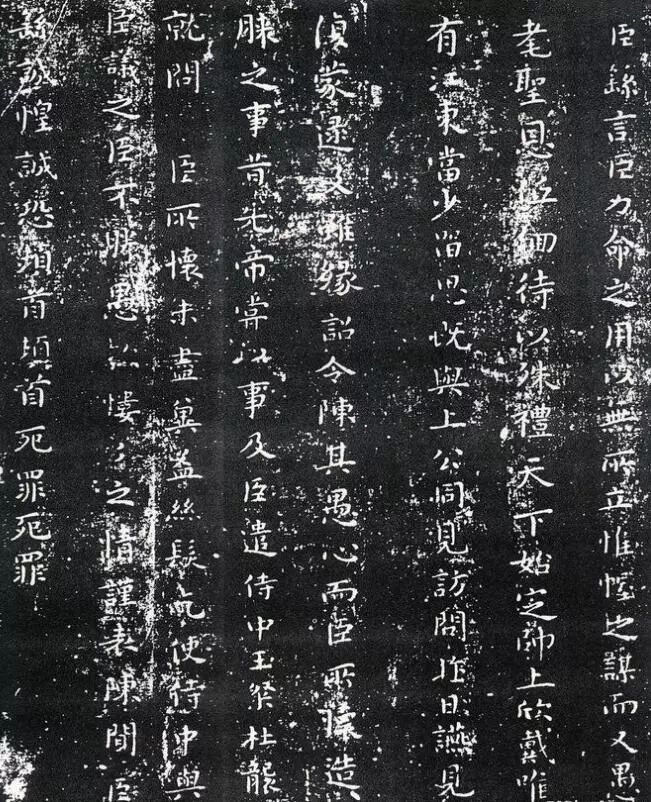 臣繇言臣力命之用以無所立惟幄之謀而又愚
耄聖恩低佪待以殊禮天下始定帥土欣戴唯
有江東當少留思既與上公同見訪問昨日讌見
復蒙逮及雖緣詔令陳其愚心而臣所懷造
膝之事昔先帝嘗以事及臣遣侍中王粲杜襲
就問臣所懷未盡冀益絲髮乞使侍中與
臣議之臣不勝愚款慺々之情謹表陳聞臣
繇誠惶誠恐頓首頓首死罪死罪